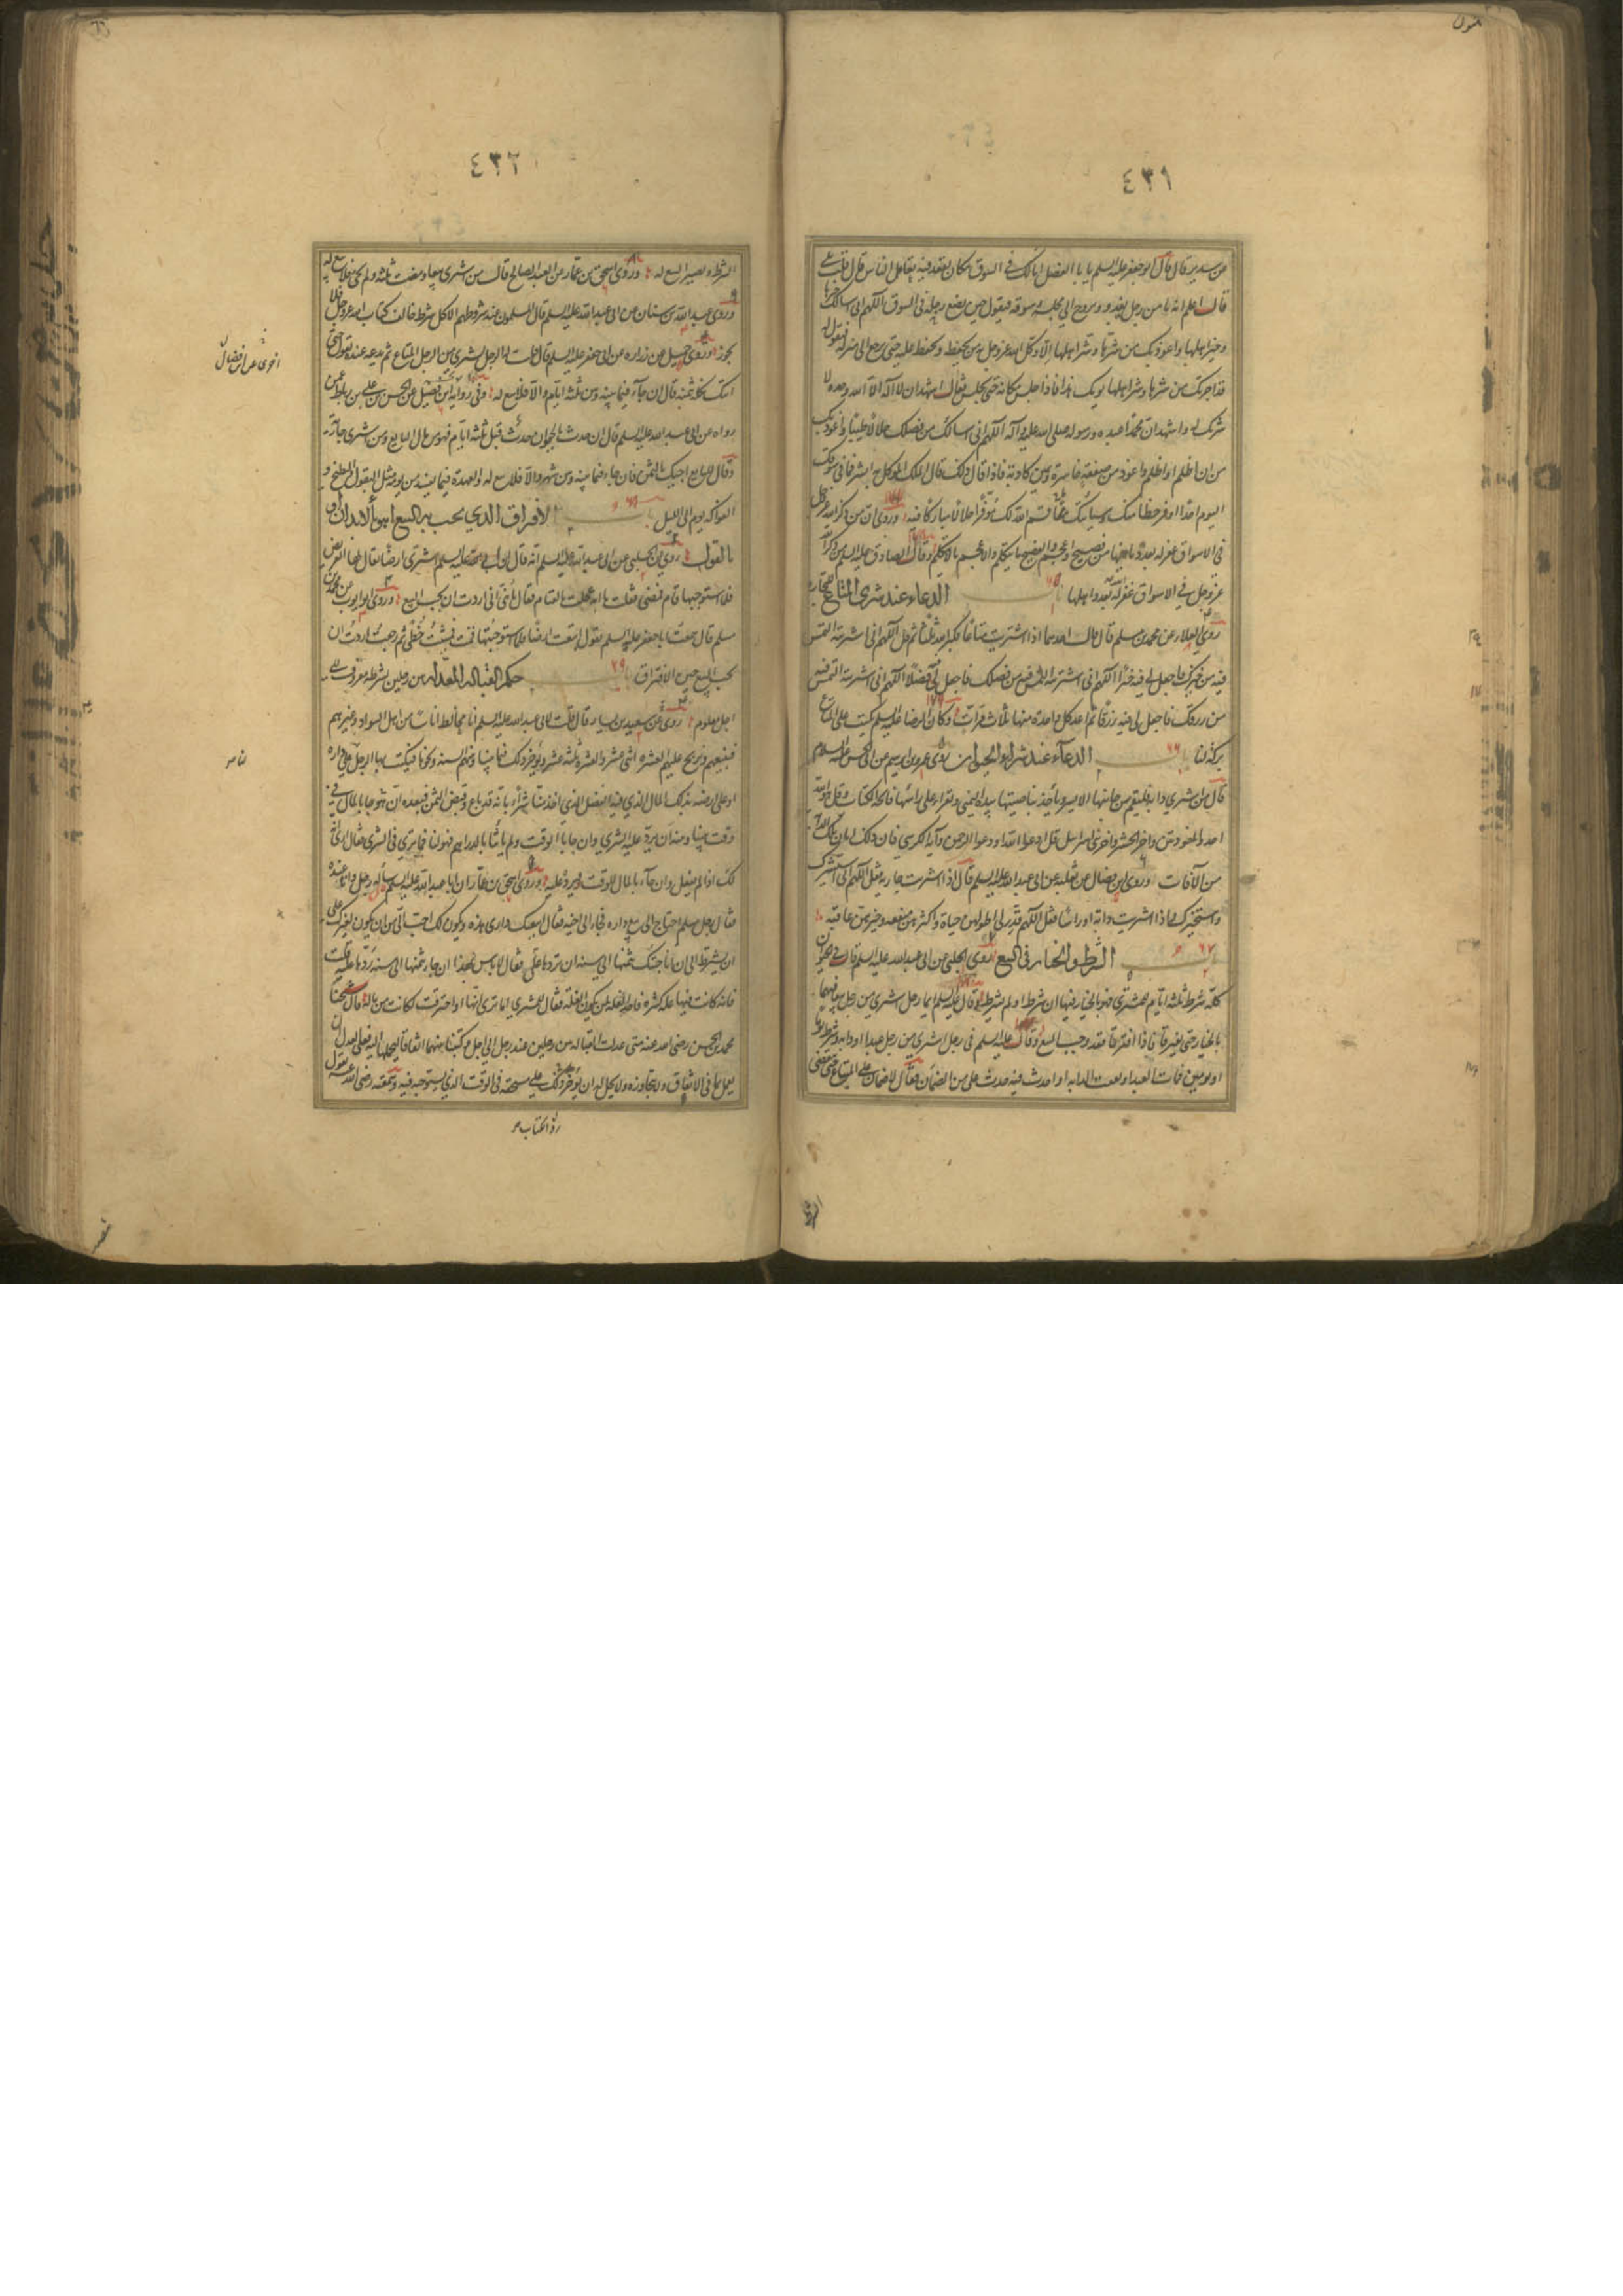 ٤٣١
عن سدير قال قال ابو جعفر عليه السلم يا با الفضل اما لك في السوق مكان تقعد فيه تعامل الناس قال قلت بلى
قال اعلم انه ما من رجل يغدو ويروح الى مجلسه وسوقه فيقول حين يضع رجله في السوق اللهم اني اسالك خيرها
وخير اهلها واعوذ بك من شرها وشر اهلها الا وكل الله عز وجل من يحفظه ويحفظ عليه حتى يرجع الى منزله فيقول له
قد اجرتك من شرها وشر اهلها يومك هذا فاذا جلس مكانه حتى يجلس فقال اشهد ان لا اله الا الله وحده لا
شريك له واشهد ان محمدا عبده ورسوله صلى الله عليه وآله اللهم اني اسالك من فضلك حلالا طيبا واعوذ بك
من ان اظلم او اظلم واعوذ بك من صفقة خاسرة ويمين كاذبة فاذا قال ذلك قال الملك الموكل به ابشر فما في سوقك
اليوم احد اوفر حظا منك وسياتيك ما قسم الله لك موفرا حلالا مباركا فيه وروي ان من ذكر الله عز وجل
في الاسواق غفر له بعدد ما فيها من فصيح واعجم والفصيح ما يتكلم والاعجم ما لا يتكلم وقال الصادق عليه السلم من ذكر الله
عز وجل في الاسواق غفر له بعدد اهلها باب ٦٥ الدعاء عند شرى المتاع للتجارة
روى العلاء عن محمد بن مسلم قال قال احدهما اذا اشتريت متاعا فكبر الله ثلثا ثم قل اللهم اني اشتريته التمس
فيه من خيرك فاجعل لي فيه خيرا اللهم اني اشتريته التمس فيه من فضلك فاجعل لي فيه فضلا اللهم اني اشتريته التمس فيه
من رزقك فاجعل لي فيه رزقا ثم اعد كل واحدة منها ثلاث مرات وكان الرضا عليه السلم يكتب على المتاع
بركة لنا باب ٦٦ الدعاء عند شراء الحيوان روى عمرو بن ابرهيم عن ابي الحسن عليه السلام
قال من اشترى دابة فليقم من جانبها الايسر وياخذ بناصيتها بيده اليمنى ويقرا على راسها فاتحة الكتاب وقل هو الله
احد والمعوذتين واخر الحشر واخر بني اسرائيل قل ادعوا الله او ادعوا الرحمن وآية الكرسي فان ذلك امان تلك الدابة
من الآفات وروى ابن فضال عن ثعلبة عن ابي عبد الله عليه السلم قال اذا اشتريت جارية فقل اللهم اني استشيرك
واستخيرك واذا اشتريت دابة او راسا فقل اللهم قدر لي اطولهن حياة واكثرهن منفعة وخيرهن عاقبة
باب ٦٧ الشرط والخيار في البيع روى الحلبي عن ابي عبد الله عليه السلم قال في الحيوان
كله شرط ثلثة ايام للمشتري فهو بالخيار فيها ان شرط او لم يشرط وقال عليه السلم ايما رجل اشترى من رجل بيعا فهما
بالخيار حتى يفترقا فاذا افترقا فقد وجب البيع وقال عليه السلم في رجل اشترى من رجل عبدا او دابة وشرط يوما
او يومين فمات العبد او نفقت الدابة او احدث فيه حدث على من الضمان فقال لا ضمان على المبتاع حتى ينقضي
٤٣٢
الشرط ويصير البيع له وروى اسحق بن عمار عن العبد الصالح قال من اشترى بيعا ومضت ثلثة ولم يجئ فلا بيع له
وروى عبد الله بن سنان عن ابي عبد الله عليه السلم قال المسلمون عند شروطهم الا كل شرط خالف كتاب الله عز وجل فلا
يجوز وروى جميل عن زراره عن ابي جعفر عليه السلم قال قلت له الرجل يشتري من الرجل المتاع ثم يدعه عنده يقول حتى
آتيك بثمنه قال ان جاء فيما بينه وبين ثلثة ايام والا فلا بيع له وفي رواية ابن فضيل عن الحسن بن علي بن رباط عمن
رواه عن ابي عبد الله عليه السلم قال ان حدث بالحيوان حدث قبل ثلثة ايام فهو من مال البايع ومن اشترى جارية
وقال للبايع اجيئك بالثمن فان جاء فيما بينه وبين شهر والا فلا بيع له والعهدة فيما يفسد من يومه مثل البقول والبطيخ و
الفواكه يوم الى الليل باب ٦٨ الافتراق الذي يجب به البيع اهو بالابدان او
بالقول روى الحلبي عن ابي عبد الله عليه السلم انه قال ان ابي عليه السلم اشترى ارضا يقال لها العريض
فلما استوجبها قام فمضى فقلت يا ابه عجلت بالقيام فقال يا بني اني اردت ان يجب البيع وروى ابو ايوب عن محمد بن
مسلم قال سمعت ابا جعفر عليه السلم يقول ابتعت ارضا فلما استوجبتها قمت فمشيت خطى ثم رجعت اردت ان
يجب البيع حين الافتراق باب ٦٩ حكم القبالة المعدلة بين رجلين بشرط معروف الى
اجل معلوم روى عن سعيد بن يسار قال قلت لابي عبد الله عليه السلم انا نخالط اناسا من اهل السواد وغيرهم
فنبيعهم ونربح عليهم العشرة اثنى عشر والعشرة ثلثة عشر ونوخر ذلك فيما بيننا وبينهم السنة ونحوها فيكتب لنا الرجل على داره
او على ارضه بذلك المال الذي فيه الفضل الذي اخذ منا شراء بانه قد باع وقبض الثمن فنعده ان هو جاء بالمال الى
وقت بيننا وبينه ان نرد عليه الشرى وان جاء الوقت ولم ياتنا بالدراهم فهو لنا فما ترى في الشرى فقال ارى انه
لك اذا لم يفعل وان جاء بالمال للوقت فرد عليه وروى اسحق بن عمار ان ابا عبد الله عليه السلم ساله رجل وانا عنده
فقال رجل مسلم احتاج الى بيع داره فجاء الى اخيه فقال ابيعك داري هذه ويكون لك احب الي من ان يكون لغيرك على
ان تشترط لي ان اناجئتك بثمنها الى سنة ان تردها علي فقال لا باس بهذا ان جاء بثمنها الى سنة ردها عليه قلت
فانه كانت فيها غلة كثيرة فاخذ الغلة لمن يكون الغلة فقال للمشتري اما ترى انها لو احترقت لكانت من ماله قال شيخنا
محمد بن الحسن رضي الله عنه متى عدلت القبالة بين رجلين عند رجل الى اجل فكتبا بينهما اتفاقا ليحملهما عليه فعلى العدل ان
يعمل بما في الاتفاق ولا يتجاوزه ولا يحل له ان يوخر ذلك على مستحقه في الوقت الذي يستوجبه فيه وسمعته رضي الله عنه يقول
رد الكتاب
ناصر